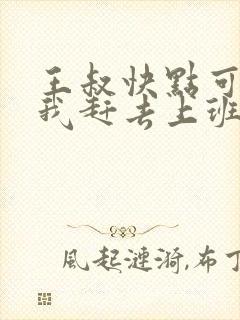 王叔快點可
我赶去上班
風起漣漪,布丁